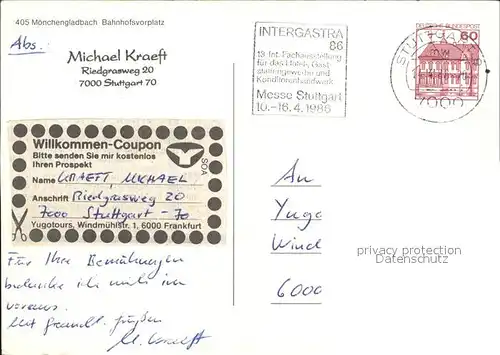 405 Mönchengladbach Bahnhofsvorplatz
Abs.:
Michael Kraeft
Riedgrasweg 20
7000 Stuttgart 70
INTERGASTRA
86
13. Int. Fachausstellung
für das Hotel-, Gast-
stättengewerbe und
Konditorenhandwerk
Messe Stuttgart
10.-16.4.1986
DEUTSCHE BUNDESPOST
60
STUTTGART
7000
Willkommen-Coupon
Bitte senden Sie mir kostenlos
Ihren Prospekt
SOA
Name KRAEFT MICHAEL
Anschrift Riedgrasweg 20
7000 Stuttgart - 70
Yugotours, Windmühlstr. 1, 6000 Frankfurt
Für Ihre Bemühungen
bedanke ich mich im
voraus.
Mit freundl. Grüßen
M. Kraeft
An
Yugo
Wind
6000
privacy protection
Datenschutz